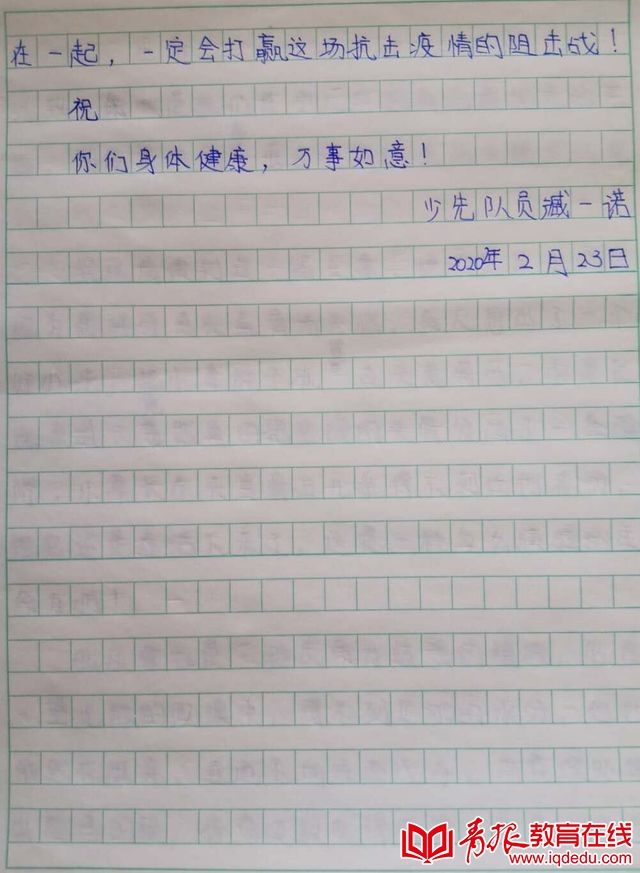 在一起，一定会打赢这场抗击疫情的阻击战！
祝
你们身体健康，万事如意！
少先队员臧一诺
2020年2月23日
青报教育在线
www.iqdedu.com